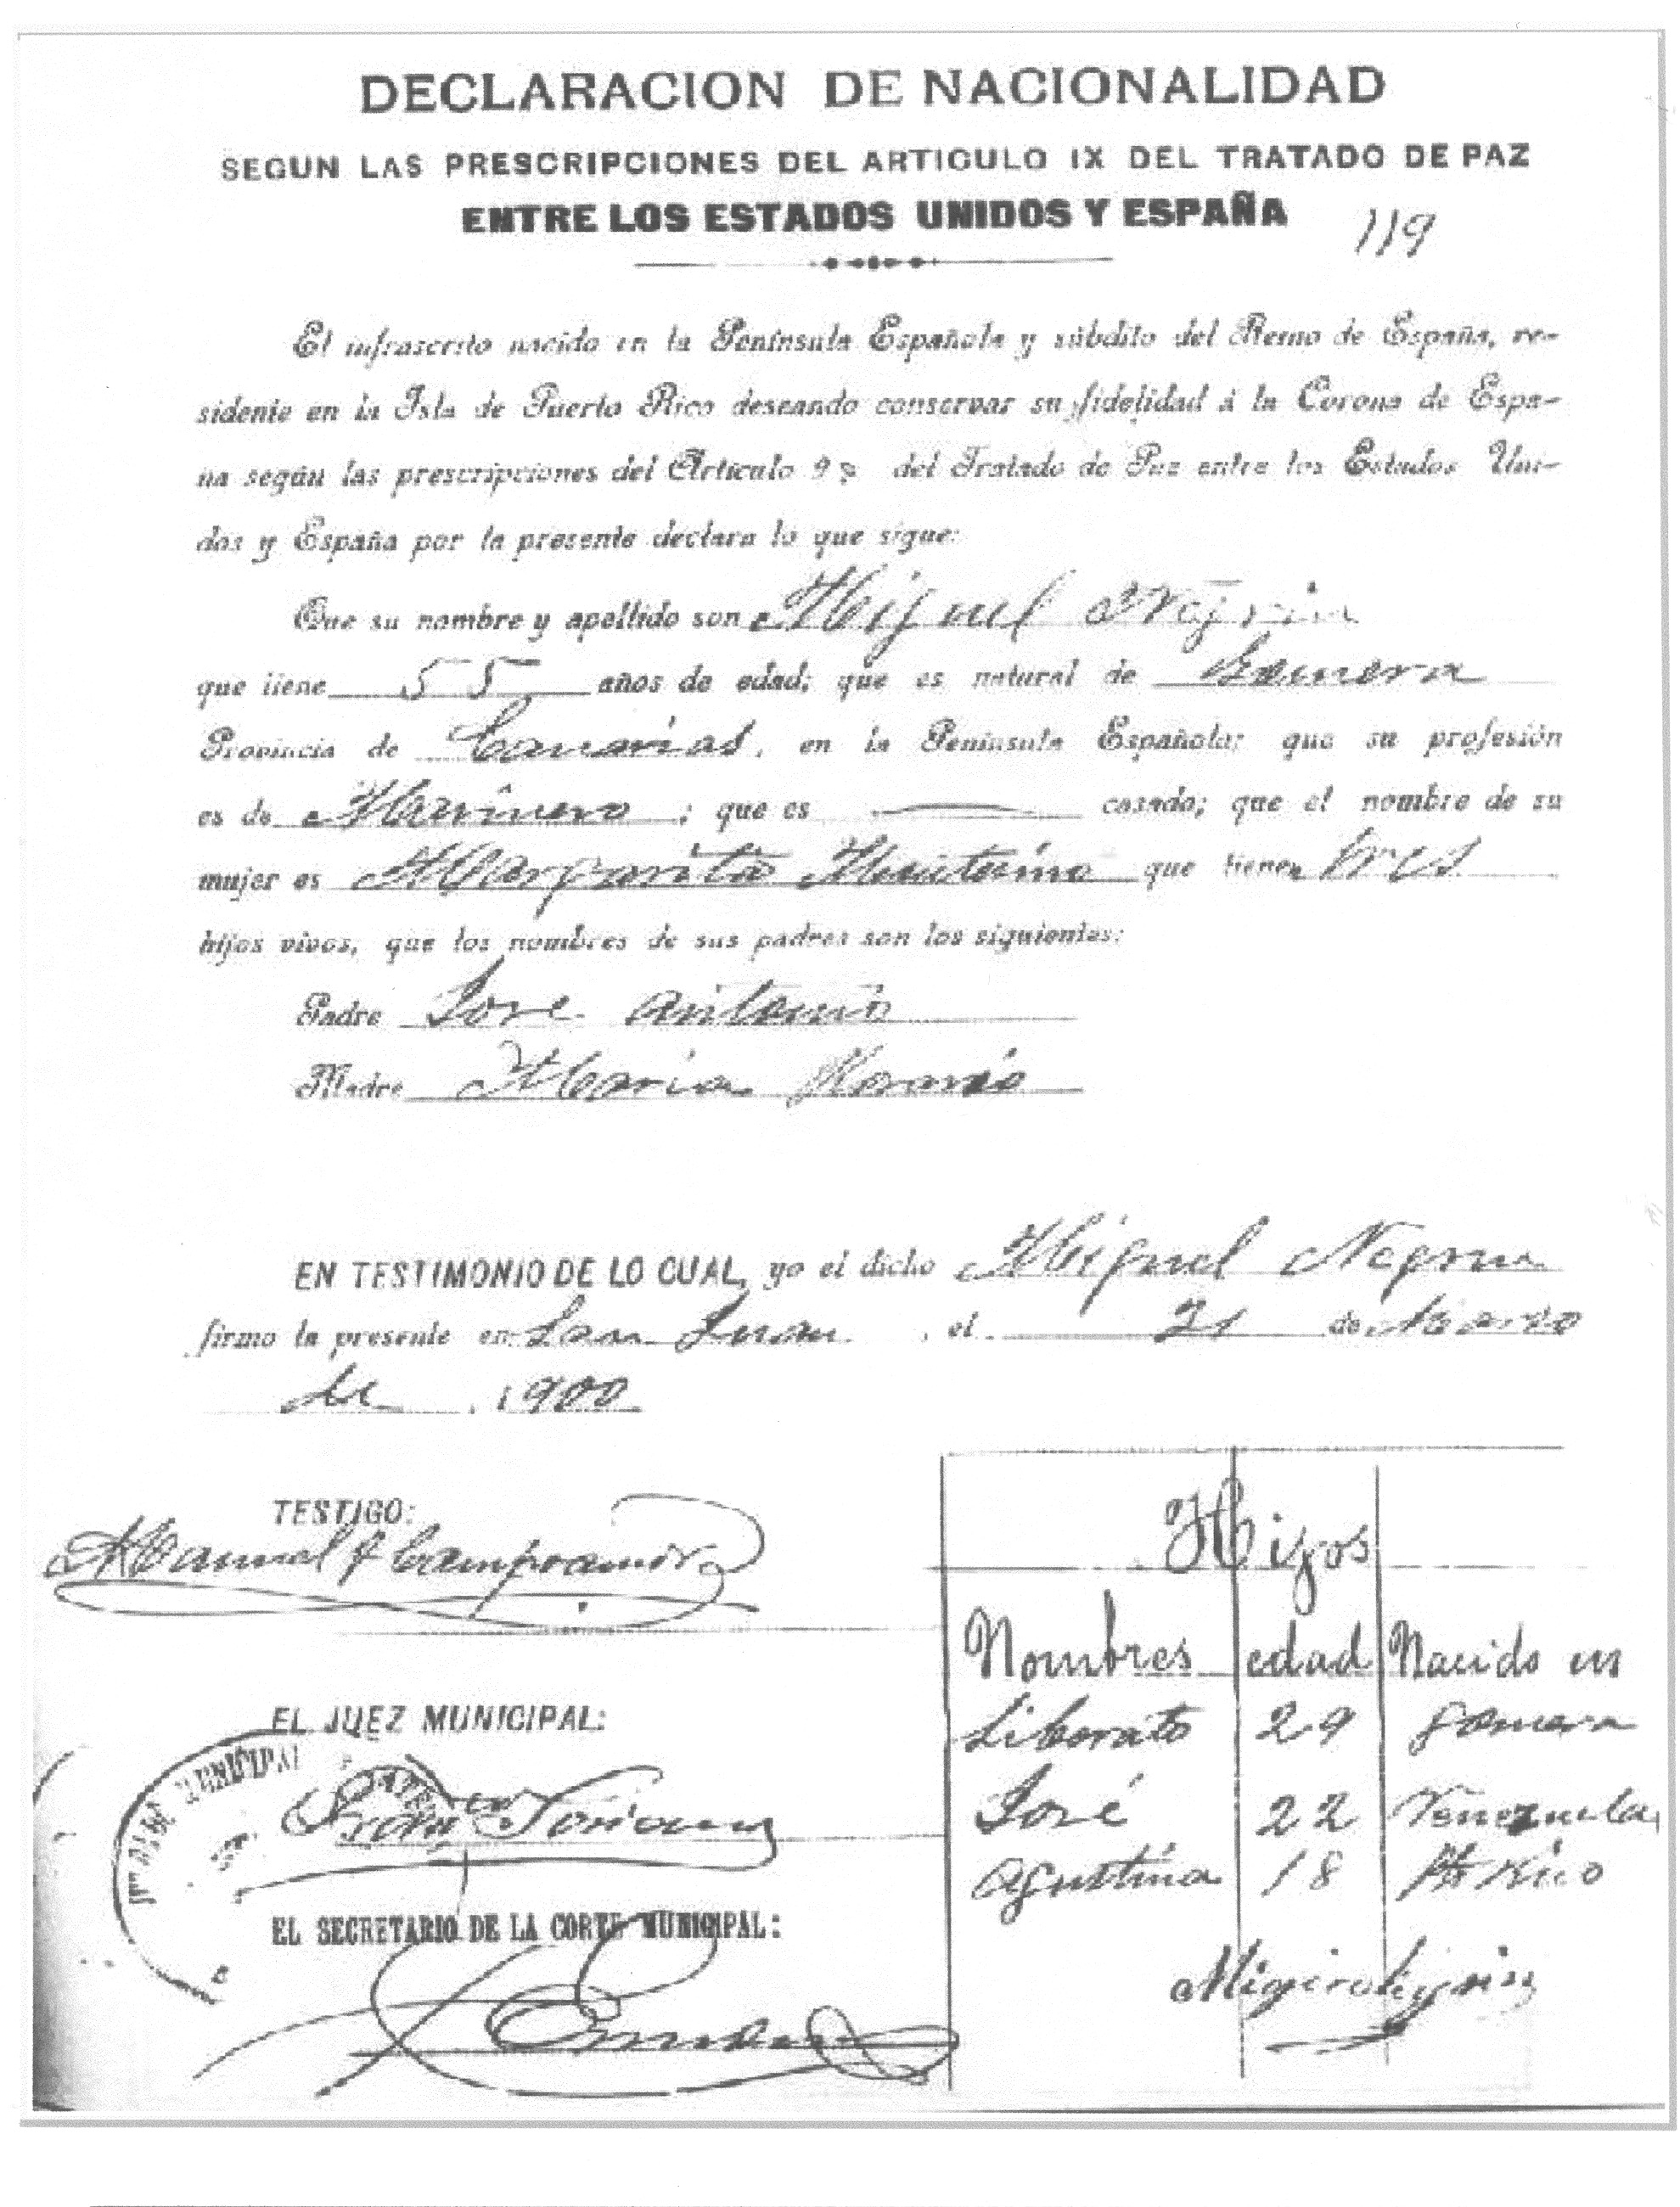 DECLARACION DE NACIONALIDAD
SEGUN LAS PRESCRIPCIONES DEL ARTICULO IX DEL TRATADO DE PAZ
ENTRE LOS ESTADOS UNIDOS Y ESPAÑA
119
El infrascrito nacido en la Península Española y súbdito del Reino de España, re-
sidente en la Isla de Puerto Rico deseando conservar su fidelidad á la Corona de Espa-
ña según las prescripciones del Artículo 9º del Tratado de Paz entre los Estados Uni-
dos y España por la presente declara lo que sigue:
Que su nombre y apellido son Miguel Negrin
que tiene 55 años de edad; que es natural de Gomera
Provincia de Canarias, en la Península Española; que su profesión
es de Marinero; que es casado; que el nombre de su
mujer es Margarita que tiene tres
hijos vivos, que los nombres de sus padres son los siguientes:
Padre Jose Antonio
Madre Maria
EN TESTIMONIO DE LO CUAL, yo el dicho Miguel Negrin
firmo la presente en San Juan, el 21 de Marzo
de 1900
TESTIGO:
Manuel F Campoamor
EL JUEZ MUNICIPAL:
Soriano
EL SECRETARIO DE LA CORTE MUNICIPAL:
Hijos
Nombres edad Nacido en
Liborato 29 Gomera
José 22 Venezuela
Agustina 18 Pto Rico